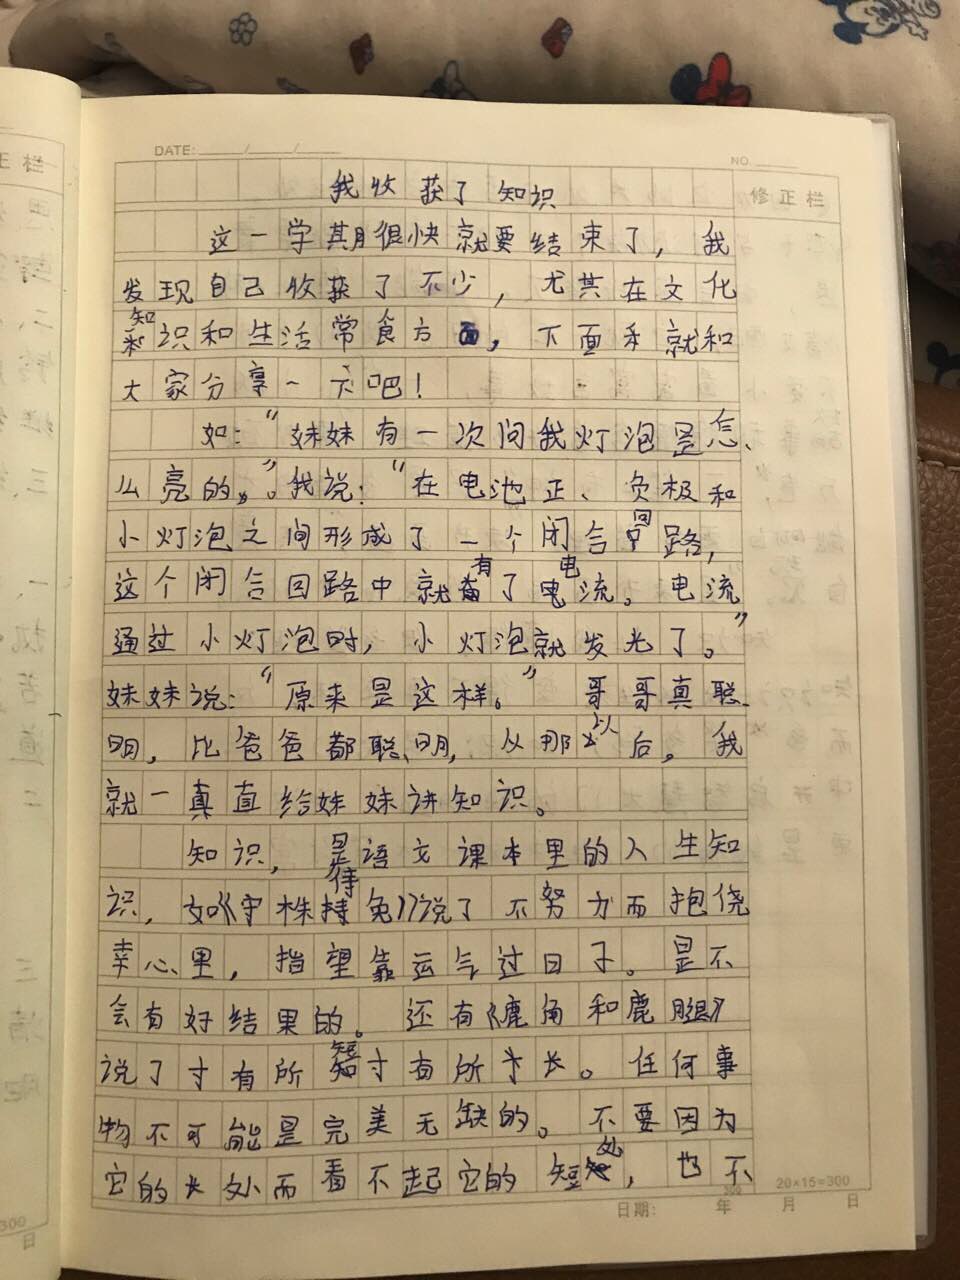 DATE: / /
NO.
正栏
修正栏
我收获了知识
这一学期很快就要结束了，我
发现自己收获了不少，尤其在文化
知识和生活常食方面，下面我就和
大家分享一下吧！
如：“妹妹有一次问我灯泡是怎
么亮的”。我说：“在电池正、负极和
小灯泡之间形成了一个闭合回路，
这个闭合回路中就有了电流。电流
通过小灯泡时，小灯泡就发光了。”
妹妹说：“原来是这样。”哥哥真聪
明，比爸爸都聪明，从那以后，我
就一真直给妹妹讲知识。
知识，是语文课本里的人生知
识，如《守株待兔》说了不努力而抱侥
幸心里，指望靠运气过日子。是不
会有好结果的。还有《鹿角和鹿腿》
说了寸有所短寸有所长。任何事
物不可能是完美无缺的。不要因为
它的长处而看不起它的短处，也不
20×15=300
日期： 年 月 日
300
日